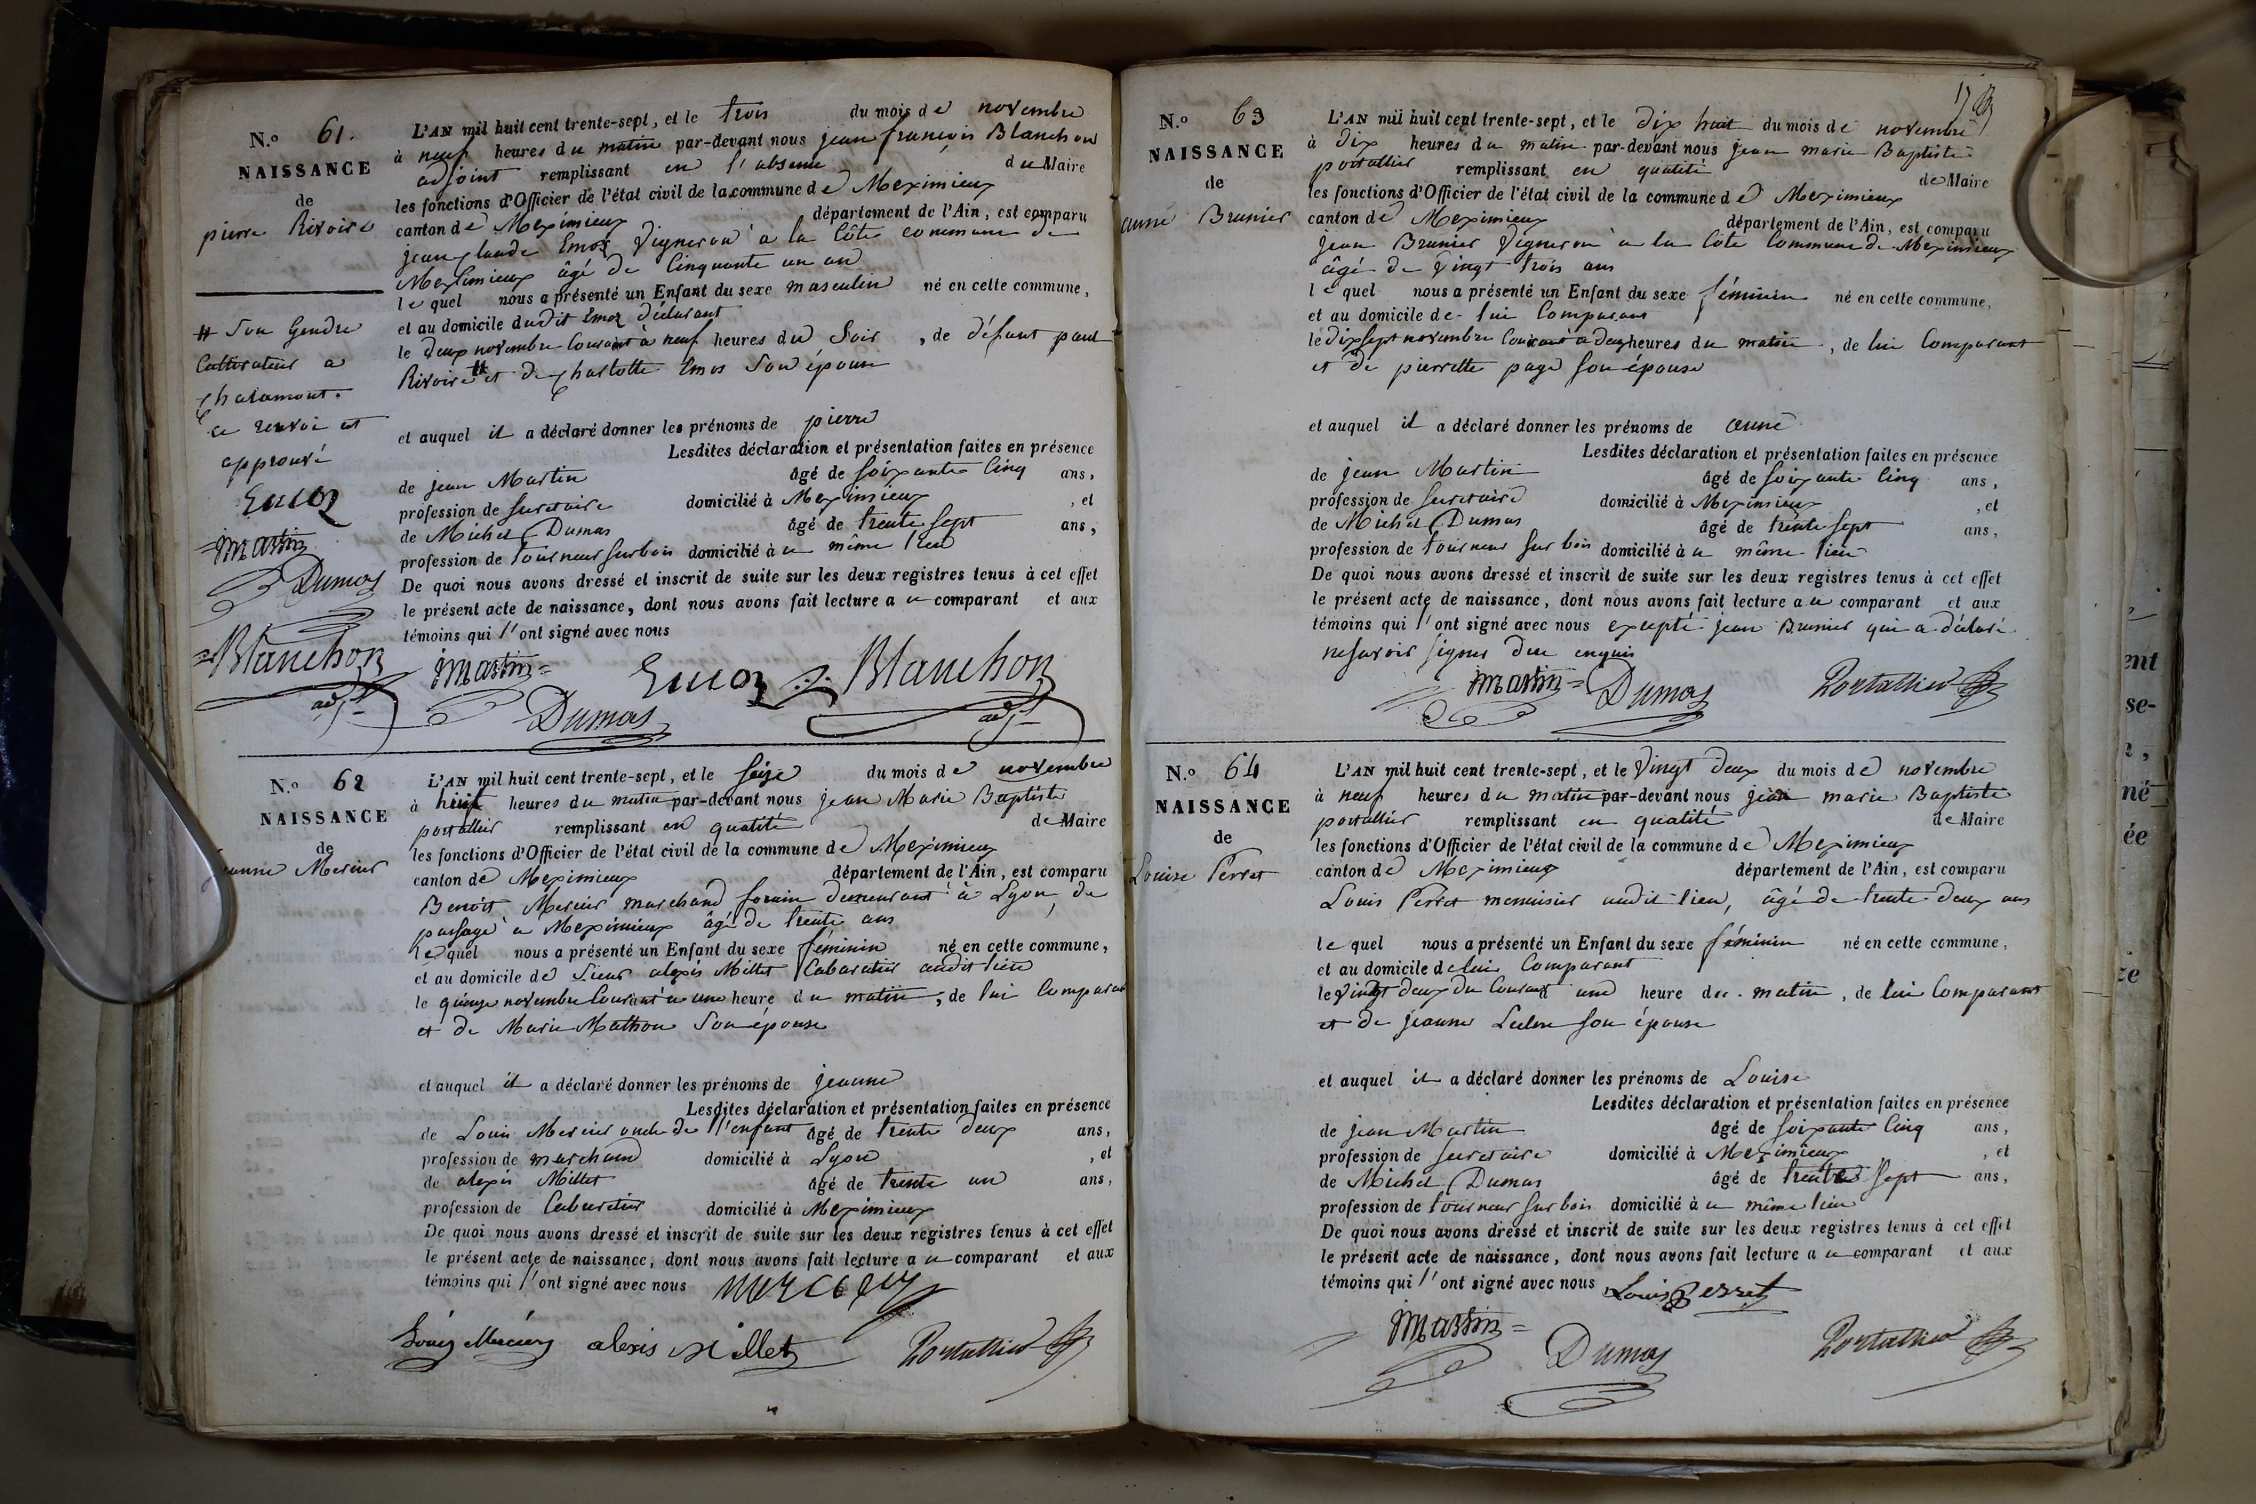 N.o 61.
NAISSANCE
de
pierre Rivoire
# Son Gendre
Cultivateur a
Chalamont.
ce renvoi est
approuvé
Emoz
Martin
Dumas
Blanchon
adjt
L'AN mil huit cent trente-sept, et le trois du mois de novembre
à neuf heures du matin par-devant nous jean francois Blanchon
adjoint remplissant en l'absence du Maire
les fonctions d'Officier de l'état civil de la commune de Meximieux
canton de Meximieux département de l'Ain, est comparu
jean claude Emoz Vigneron à la Côte commune de
Meximieux âgé de Cinquante un an
lequel nous a présenté un Enfant du sexe masculin né en cette commune,
et au domicile dudit Emoz déclarant
le deux novembre Courant à neuf heures du Soir, de défunt paul
Rivoire # et de Charlotte Emos Son épouse
et auquel il a déclaré donner les prénoms de pierre
Lesdites déclaration et présentation faites en présence
de jean Martin âgé de soixante Cinq ans,
profession de Secretaire domicilié à Meximieux, et
de Michel Dumas âgé de trente sept ans,
profession de tourneur sur bois domicilié à ce même lieu
De quoi nous avons dressé et inscrit de suite sur les deux registres tenus à cet effet
le présent acte de naissance, dont nous avons fait lecture a ce comparant et aux
témoins qui l'ont signé avec nous
Martin Emoz Blanchon
Dumas adjt
N.o 62
NAISSANCE
de
jeanne Mercier
L'AN mil huit cent trente-sept, et le seize du mois de novembre
à huit heures du matin par-devant nous jean Marie Baptiste
portallier remplissant en qualité de Maire
les fonctions d'Officier de l'état civil de la commune de Meximieux
canton de Meximieux département de l'Ain, est comparu
Benoit Mercier marchand forain demeurant à Lyon, de
passage à Meximieux âgé de trente ans
lequel nous a présenté un Enfant du sexe féminin né en cette commune,
et au domicile de Sieur alexis Millet Cabaretier audit lieu
le quinze novembre Courant a une heure du matin, de lui Comparant
et de Marie Mathon Son épouse
et auquel il a déclaré donner les prénoms de jeanne
Lesdites déclaration et présentation faites en présence
de Louis Mercier oncle de l'enfant âgé de trente deux ans,
profession de marchand domicilié à Lyon, et
de alexis Millet âgé de trente un ans,
profession de Cabaretier domicilié à Meximieux
De quoi nous avons dressé et inscrit de suite sur les deux registres tenus à cet effet
le présent acte de naissance, dont nous avons fait lecture a ce comparant et aux
témoins qui l'ont signé avec nous
Louis Mercier alexis Millet Portallier
17
N.o 63
NAISSANCE
de
anne Brunier
L'AN mil huit cent trente-sept, et le dix huit du mois de novembre
à dix heures du matin par-devant nous jean marie Baptiste
portallier remplissant en qualité de Maire
les fonctions d'Officier de l'état civil de la commune de Meximieux
canton de Meximieux département de l'Ain, est comparu
jean Brunier Vigneron à la Côte Commune de Meximieux
âgé de Vingt trois ans
lequel nous a présenté un Enfant du sexe féminin né en cette commune,
et au domicile de lui Comparant
le dix sept novembre Courant à deux heures du matin, de lui Comparant
et de pierrette page son épouse
et auquel il a déclaré donner les prénoms de anne
Lesdites déclaration et présentation faites en présence
de jean Martin âgé de soixante Cinq ans,
profession de Secretaire domicilié à Meximieux, et
de Michel Dumas âgé de trente sept ans,
profession de tourneur sur bois domicilié à ce même lieu
De quoi nous avons dressé et inscrit de suite sur les deux registres tenus à cet effet
le présent acte de naissance, dont nous avons fait lecture a ce comparant et aux
témoins qui l'ont signé avec nous excepté jean Brunier qui a déclaré
ne savoir signer de ce enquis
Martin Dumas Portallier
N.o 64
NAISSANCE
de
Louise Perret
L'AN mil huit cent trente-sept, et le Vingt deux du mois de novembre
à neuf heures du matin par-devant nous jean marie Baptiste
portallier remplissant en qualité de Maire
les fonctions d'Officier de l'état civil de la commune de Meximieux
canton de Meximieux département de l'Ain, est comparu
Louis Perret menuisier audit lieu, âgé de trente deux ans
lequel nous a présenté un Enfant du sexe féminin né en cette commune,
et au domicile de lui Comparant
le Vingt deux du Courant une heure du matin, de lui Comparant
et de jeanne son épouse
et auquel il a déclaré donner les prénoms de Louise
Lesdites déclaration et présentation faites en présence
de jean Martin âgé de soixante Cinq ans,
profession de Secretaire domicilié à Meximieux, et
de Michel Dumas âgé de trente sept ans,
profession de tourneur sur bois domicilié à ce même lieu
De quoi nous avons dressé et inscrit de suite sur les deux registres tenus à cet effet
le présent acte de naissance, dont nous avons fait lecture a ce comparant et aux
témoins qui l'ont signé avec nous Louis Perret
Martin Dumas Portallier
ent
se-
né
ée